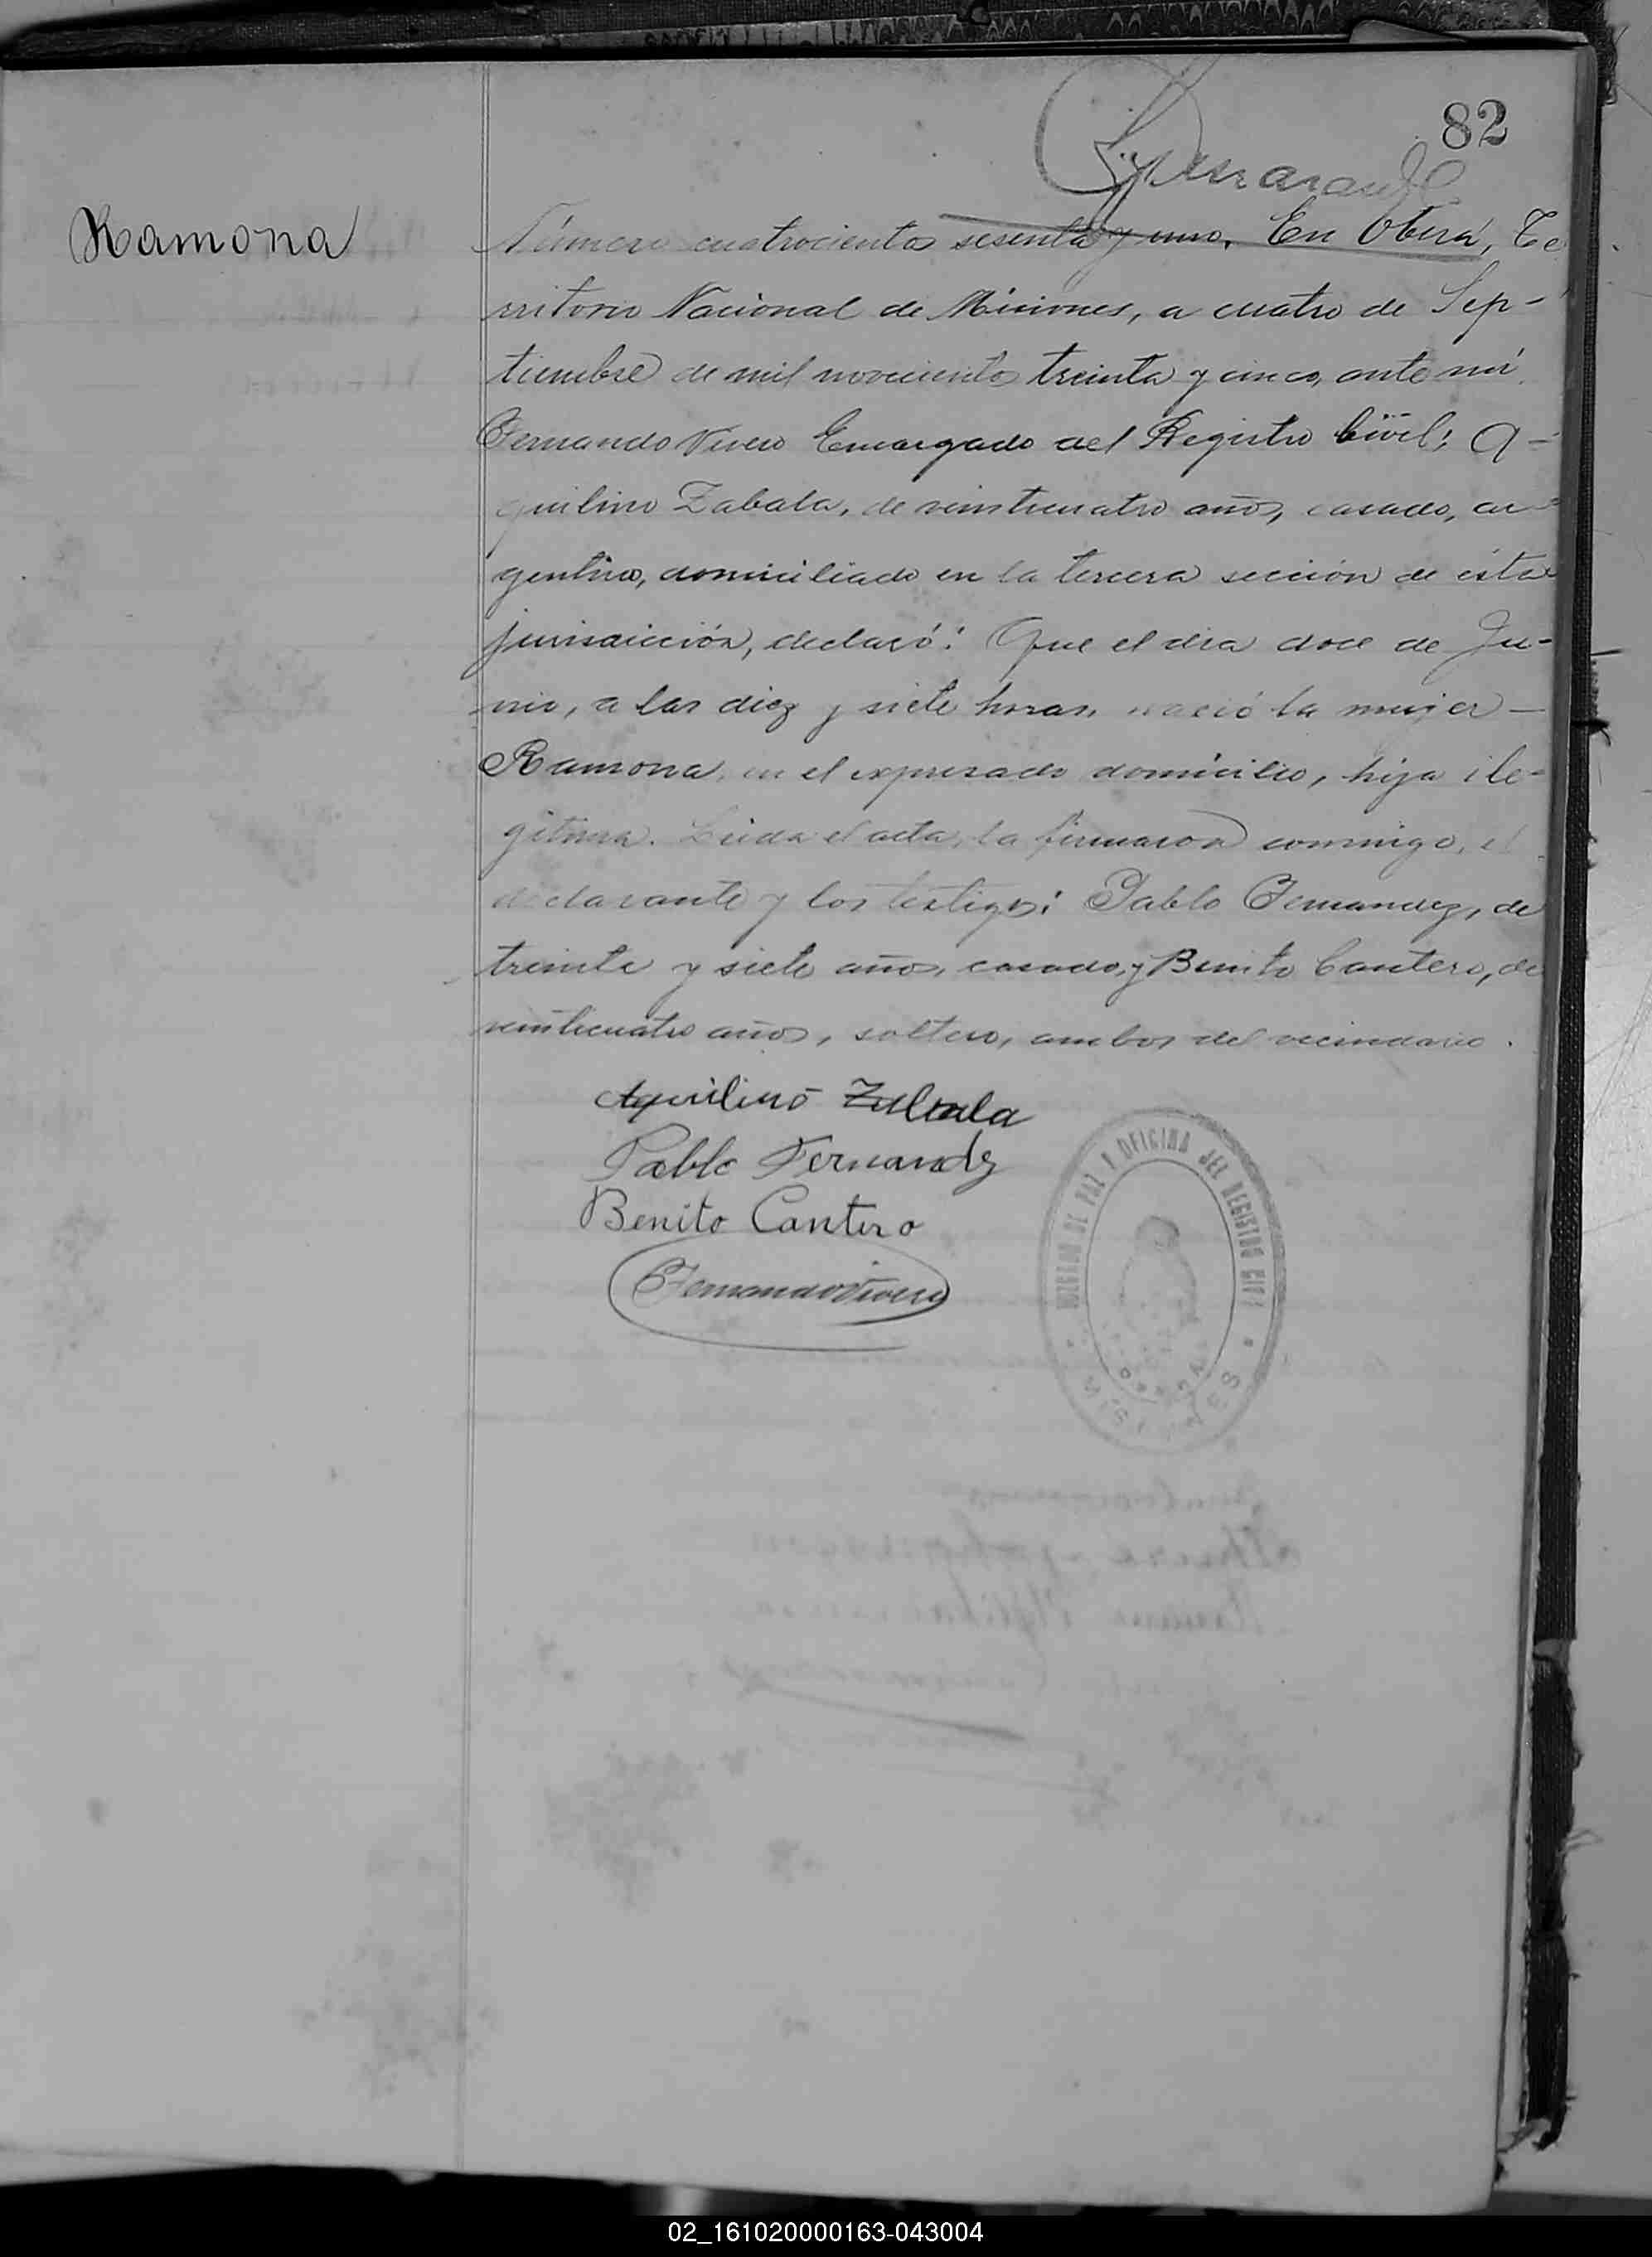 82
Ramona
Número cuatrocientos sesenta y uno. En Oberá, Te
rritorio Nacional de Misiones, a cuatro de Sep-
tiembre de mil novecientos treinta y cinco, ante mí
Fernando Vivero Encargado del Registro Civil; A-
quilino Zabala, de veinticuatro años, casado, ar-
gentino, domiciliado en la tercera sección de ésta
jurisdicción, declaró: Que el día doce de Ju-
nio, a las diez y siete horas, nació la mujer —
Ramona, en el expresado domicilio, hija ile-
gítima. Leída el acta, la firmaron conmigo, el
declarante y los testigos: Pablo Fernandez, de
treinta y siete años, casado, y Benito Cantero, de
veinticuatro años, soltero, ambos del vecindario.
Aquilino Zabala
Pablo Fernandez
Benito Cantero
Fernando Vivero
JUZGADO DE PAZ Y OFICINA DEL REGISTRO CIVIL
MISIONES
02_161020000163-043004